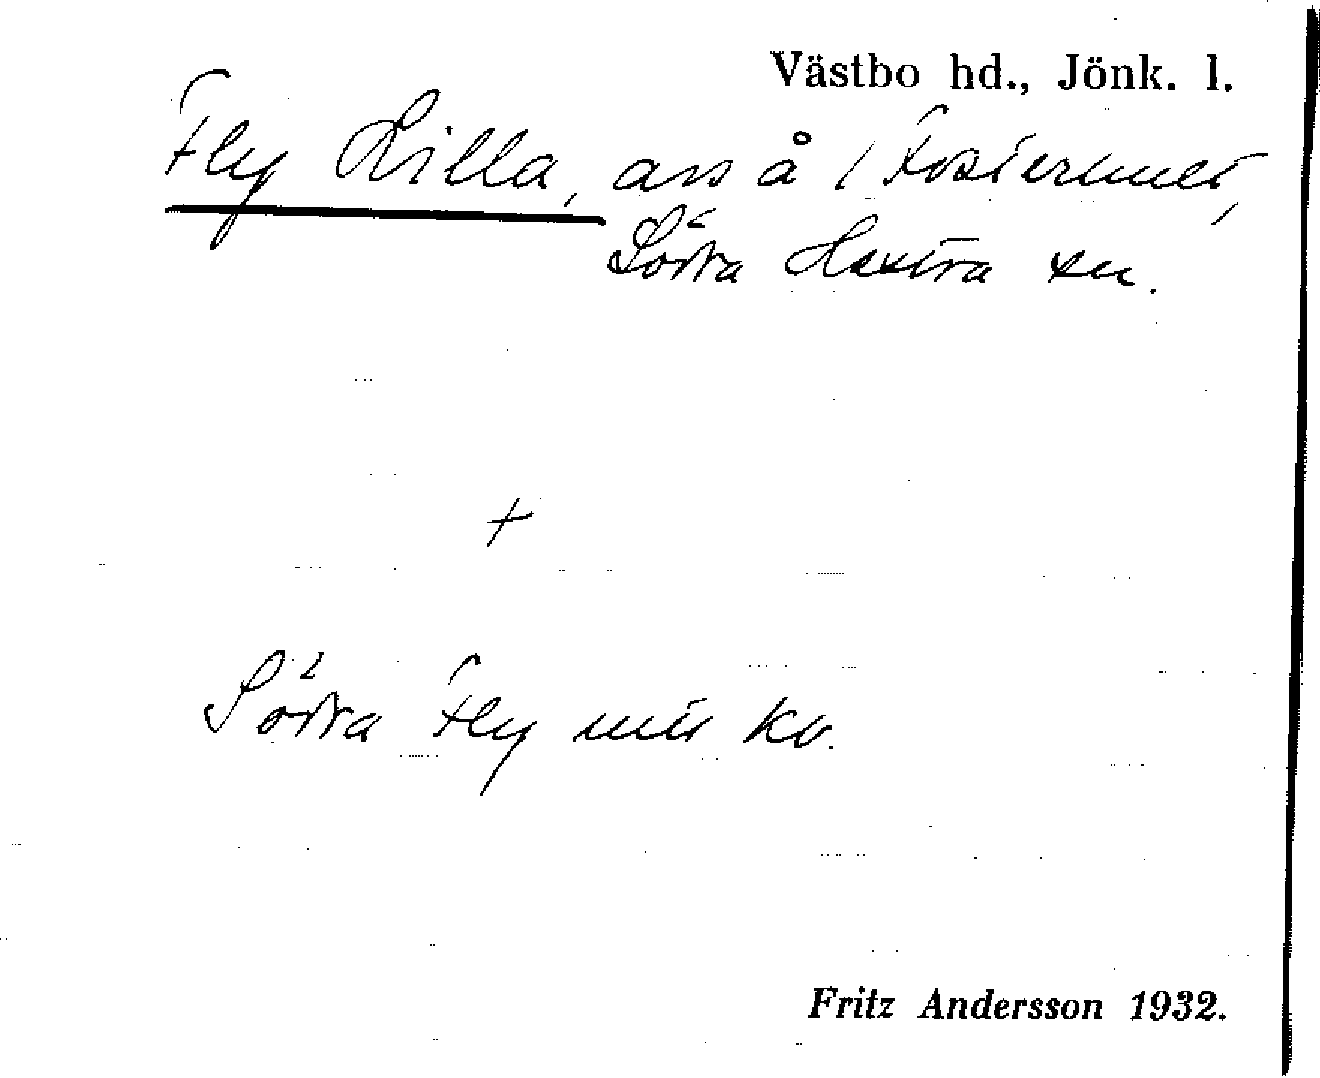 Västbo hd., Jönk. l.
Fly Lilla, avs å
Södra Hestra sn.
+
Södra Fly
Fritz Andersson 1932.